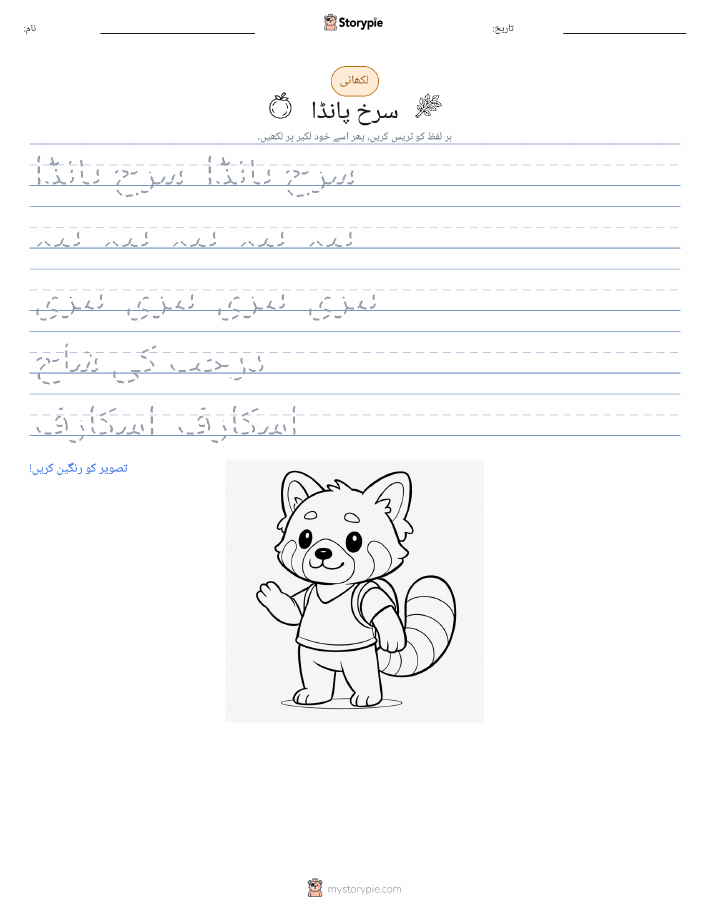 Storypie
نام:
تاریخ:
لکھائی
سرخ پانڈا
ہر لفظ کو ٹریس کریں، پھر اسے خود لکیر پر لکھیں۔
سرخ پانڈا سرخ پانڈا
درخت کی شاخ
اسکارف اسکارف
تصویر کو رنگین کریں!
mystorypie.com